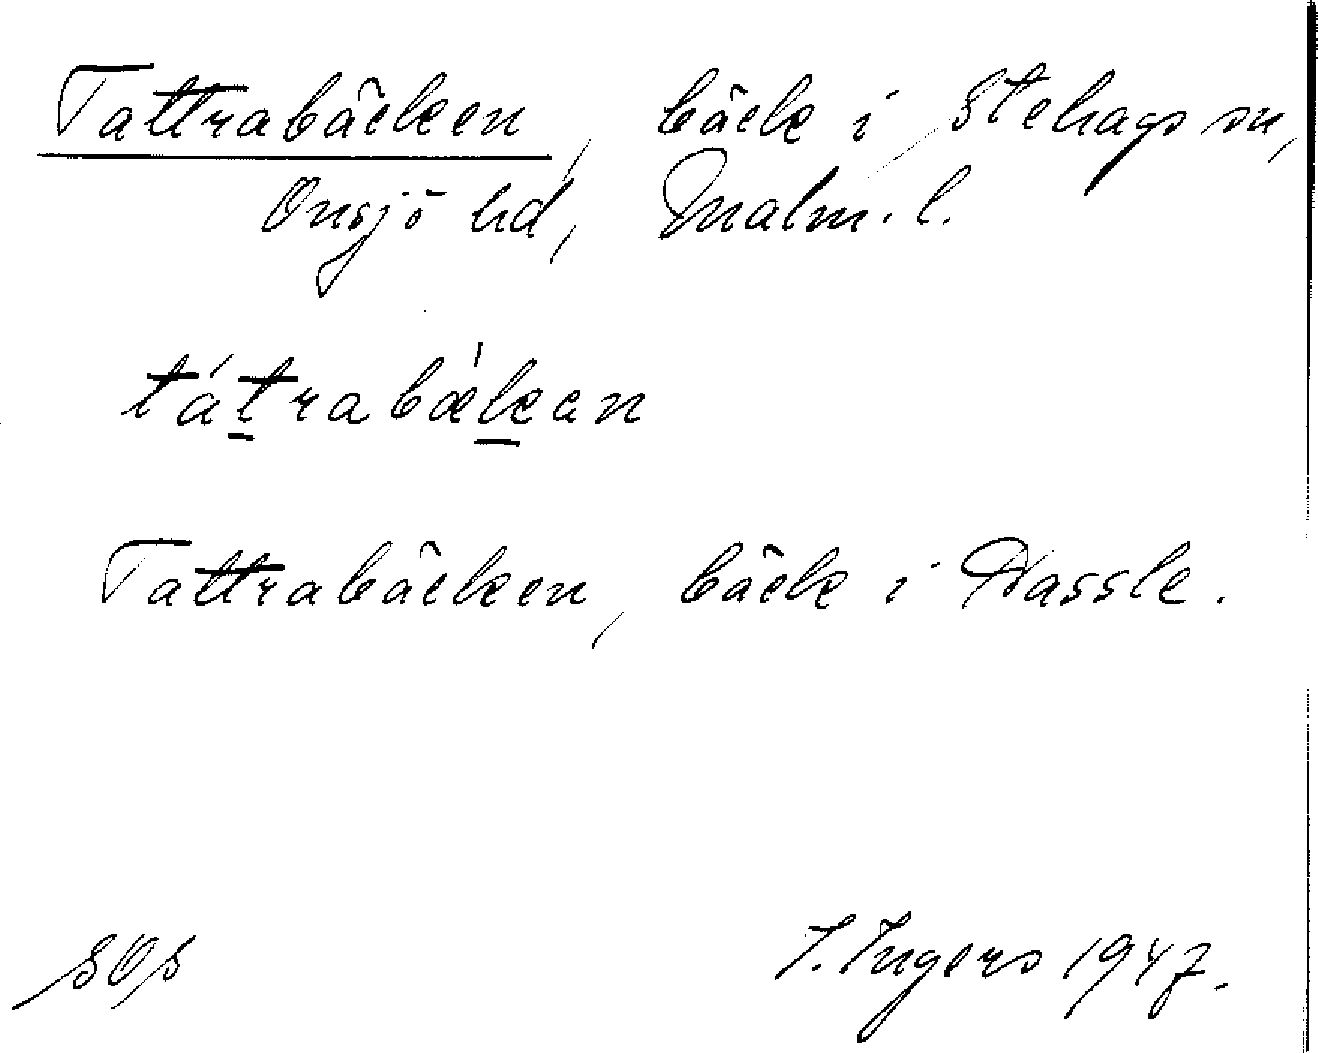 Tattrabäcken, bäck i Stehags sn,
Onsjö hd, Malm. l.
tátrabæ̀kan
Tattrabäcken, bäck i Hassle.
I. Ingers 1947.